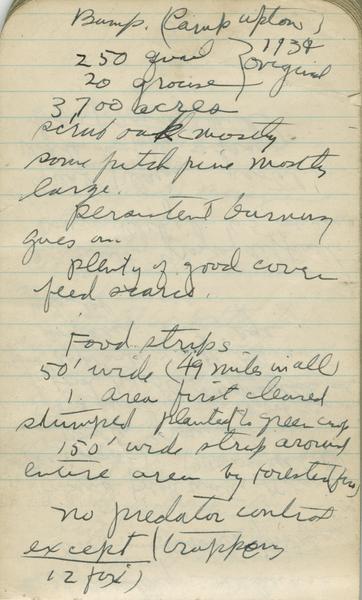 Bump. (Camp Upton)
250 quail } 1934
20 grouse } original
3,700 acres
scrub oak mostly.
some pitch pine mostly
large.
persistent burning
goes on.
plenty of good cover
feed scarce.
Food strips
50' wide (49 miles in all)
1. area first cleared
stumped planted to green crop
150' wide strip around
entire area by Forester (fire)
no predator control
except (trappers
12 fox)